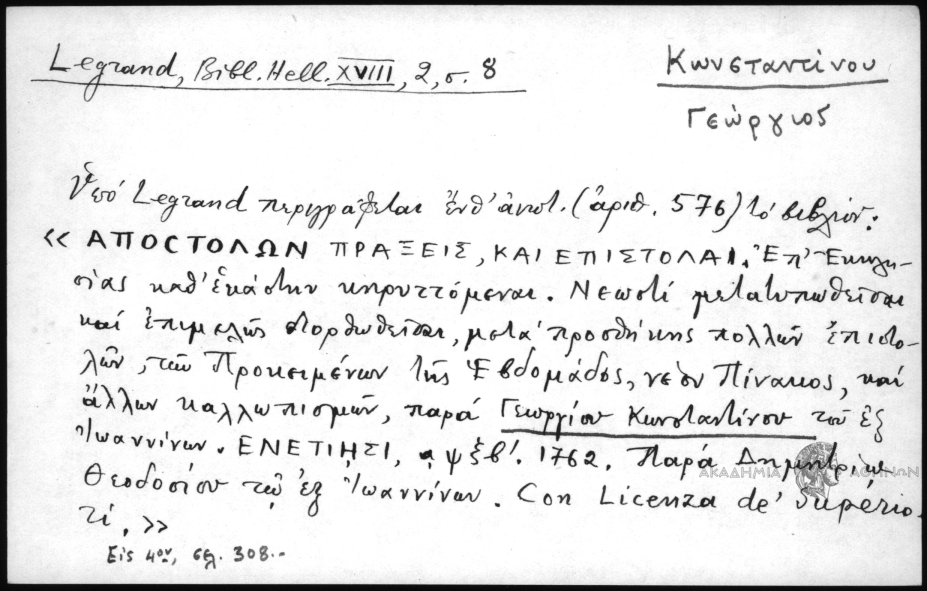 Legrand, Bibl. Hell. XVIII, 2, σ. 8
Κωνσταντίνου
Γεώργιος
Ὑπό Legrand περιγράφεται ἐνθ' ἀνωτ. (ἀριθ. 576) τό βιβλίον:
«ΑΠΟCΤΟΛΩΝ ΠΡΑΞΕΙΣ, ΚΑΙ ΕΠΙΣΤΟΛΑΙ. Ἐπ' Ἐκκλη-
σίας καθ' ἑκάστην κηρυττόμεναι. Νεωστί μετατυπωθεῖσαι
καί ἐπιμελῶς διορθωθεῖσαι, μετά προσθήκης πολλῶν ἐπιστο-
λῶν, τῶν Προκειμένων τῆς Ἑβδομάδος, νέου Πίνακος, καί
ἄλλων καλλωπισμῶν, παρά Γεωργίου Κωνσταντίνου τοῦ ἐξ
Ἰωαννίνων. ΕΝΕΤΙῌΣΙ, ͵αψξβ'. 1762. Παρά Δημητρίῳ
Θεοδοσίου τῷ ἐξ Ἰωαννίνων. Con Licenza de' Superio-
ri.»
Εἰς 4ον, σελ. 308.-
ΑΚΑΔΗΜΙΑ ΑΘΗΝΩΝ